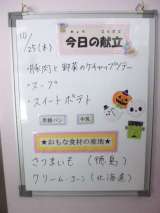 きょう こんだて
今日の献立
10/25(木)
・豚肉と野菜のケチャップソテー
・スープ
・スイートポテト
牛乳
★おもな食材の産地★
さつまいも (徳島)
クリームコーン(北海道)